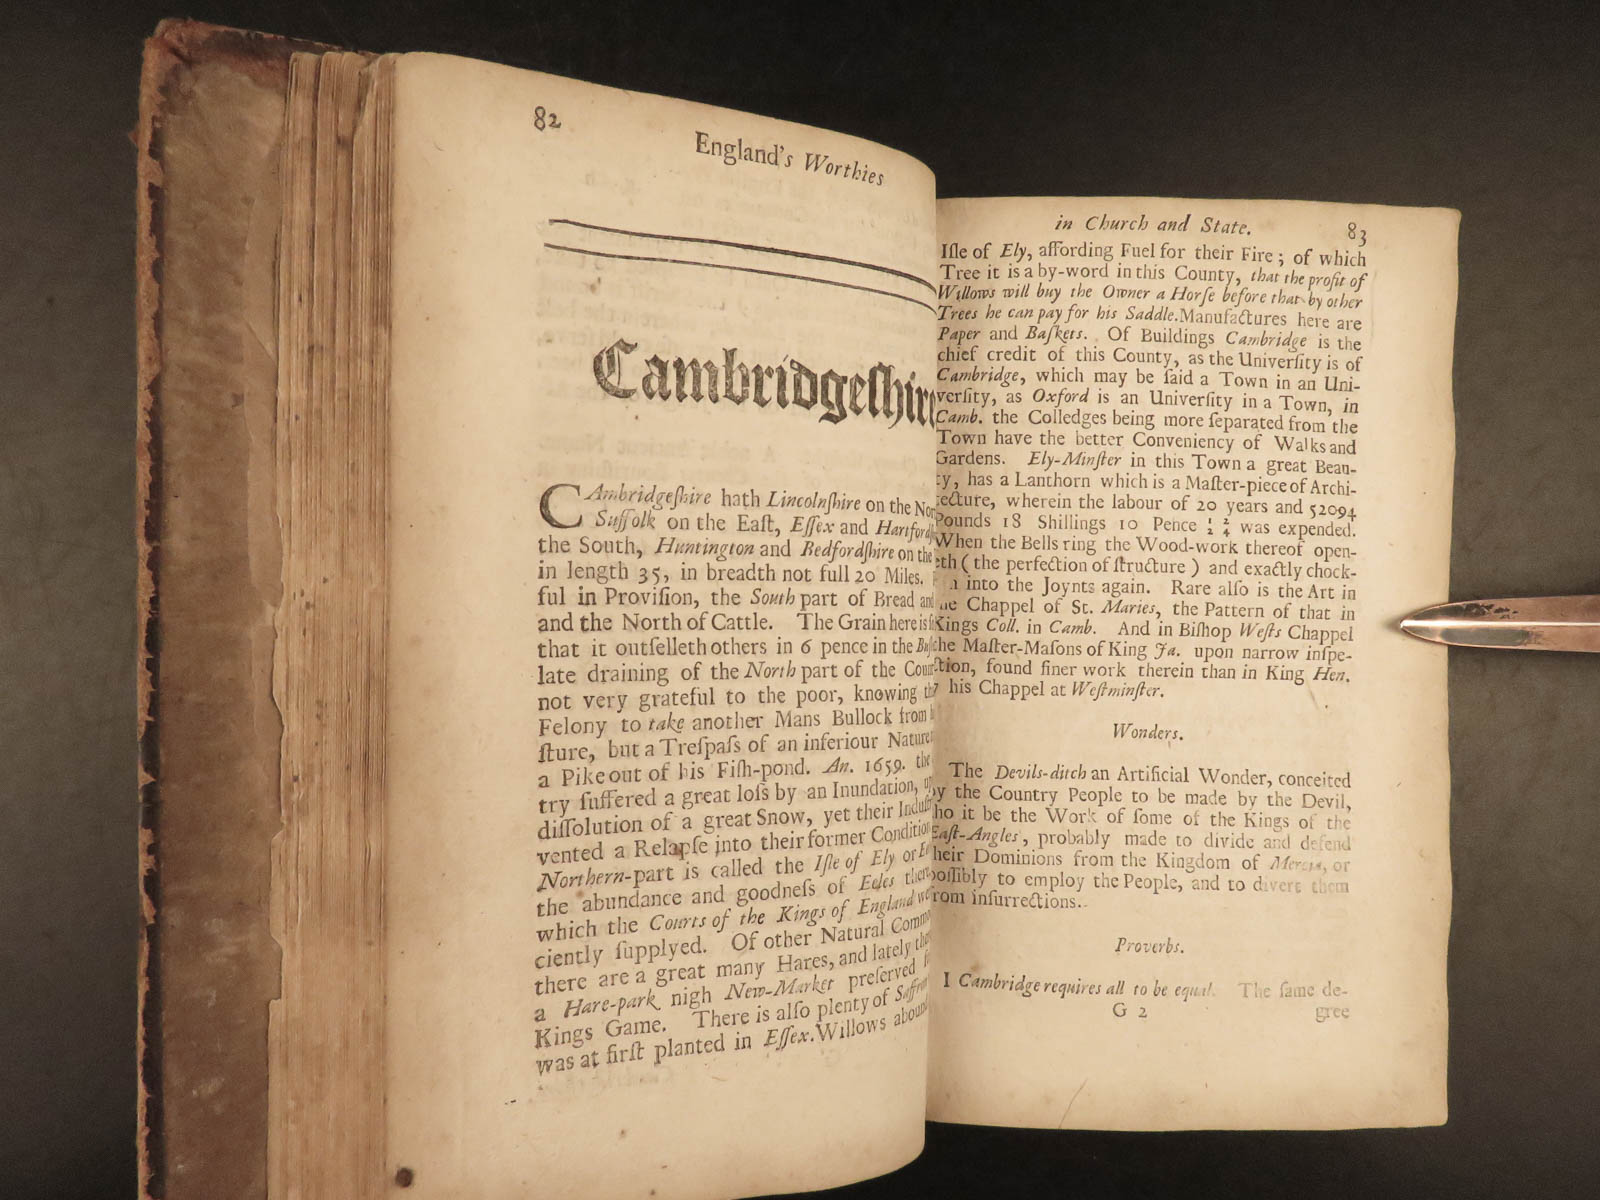 82
England's Worthies
Cambridgeſhire
CAmbridgeſhire hath Lincolnſhire on the
Suffolk on the Eaſt, Eſſex and
the South, Huntington and Bedfordſhire on the
in length 35, in breadth not full 20 Miles.
ful in Proviſion, the South part of Bread and
and the North of Cattle. The Grain here is
that it outſelleth others in 6 pence in the
late draining of the North part of the
not very grateful to the poor, knowing
Felony to take another Mans Bullock from
ſture, but a Treſpaſs of an inferiour Nature
a Pike out of his Fiſh-pond. An. 1659. the
try ſuffered a great loſs by an Inundation,
diſſolution of a great Snow, yet their
vented a Relapſe into their former Condition
Northern-part is called the Iſle of Ely or
the abundance and goodneſs of Eeles
which the Courts of the Kings of England
ciently ſupplyed. Of other Natural
there are a great many Hares, and lately
a Hare-park nigh New-Market preſerved
Kings Game. There is alſo plenty of
was at firſt planted in Eſſex. Willows
in Church and State.
83
Iſle of Ely, affording Fuel for their Fire; of which
Tree it is a by-word in this County, that the profit of
Willows will buy the Owner a Horſe before that by other
Trees he can pay for his Saddle. Manufactures here are
Paper and Baſkets. Of Buildings Cambridge is the
chief credit of this County, as the Univerſity is of
Cambridge, which may be ſaid a Town in an Uni-
verſity, as Oxford is an Univerſity in a Town, in
Camb. the Colledges being more ſeparated from the
Town have the better Conveniency of Walks and
Gardens. Ely-Minſter in this Town a great Beau-
ty, has a Lanthorn which is a Maſter-piece of Archi-
tecture, wherein the labour of 20 years and 52094
Pounds 18 Shillings 10 Pence 1/2 2/4 was expended.
When the Bells ring the Wood-work thereof open-
eth (the perfection of ſtructure) and exactly chock-
into the Joynts again. Rare alſo is the Art in
Chappel of St. Maries, the Pattern of that in
Kings Coll. in Camb. And in Biſhop Weſts Chappel
the Maſter-Maſons of King Ja. upon narrow inſpe-
ction, found finer work therein than in King Hen.
7 his Chappel at Weſtminſter.
Wonders.
The Devils-ditch an Artificial Wonder, conceited
by the Country People to be made by the Devil,
tho it be the Work of ſome of the Kings of the
Eaſt-Angles, probably made to divide and defend
their Dominions from the Kingdom of Mercia, or
poſſibly to employ the People, and to divert them
from inſurrections.
Proverbs.
1 Cambridge requires all to be equal. The ſame de-
G 2
gree